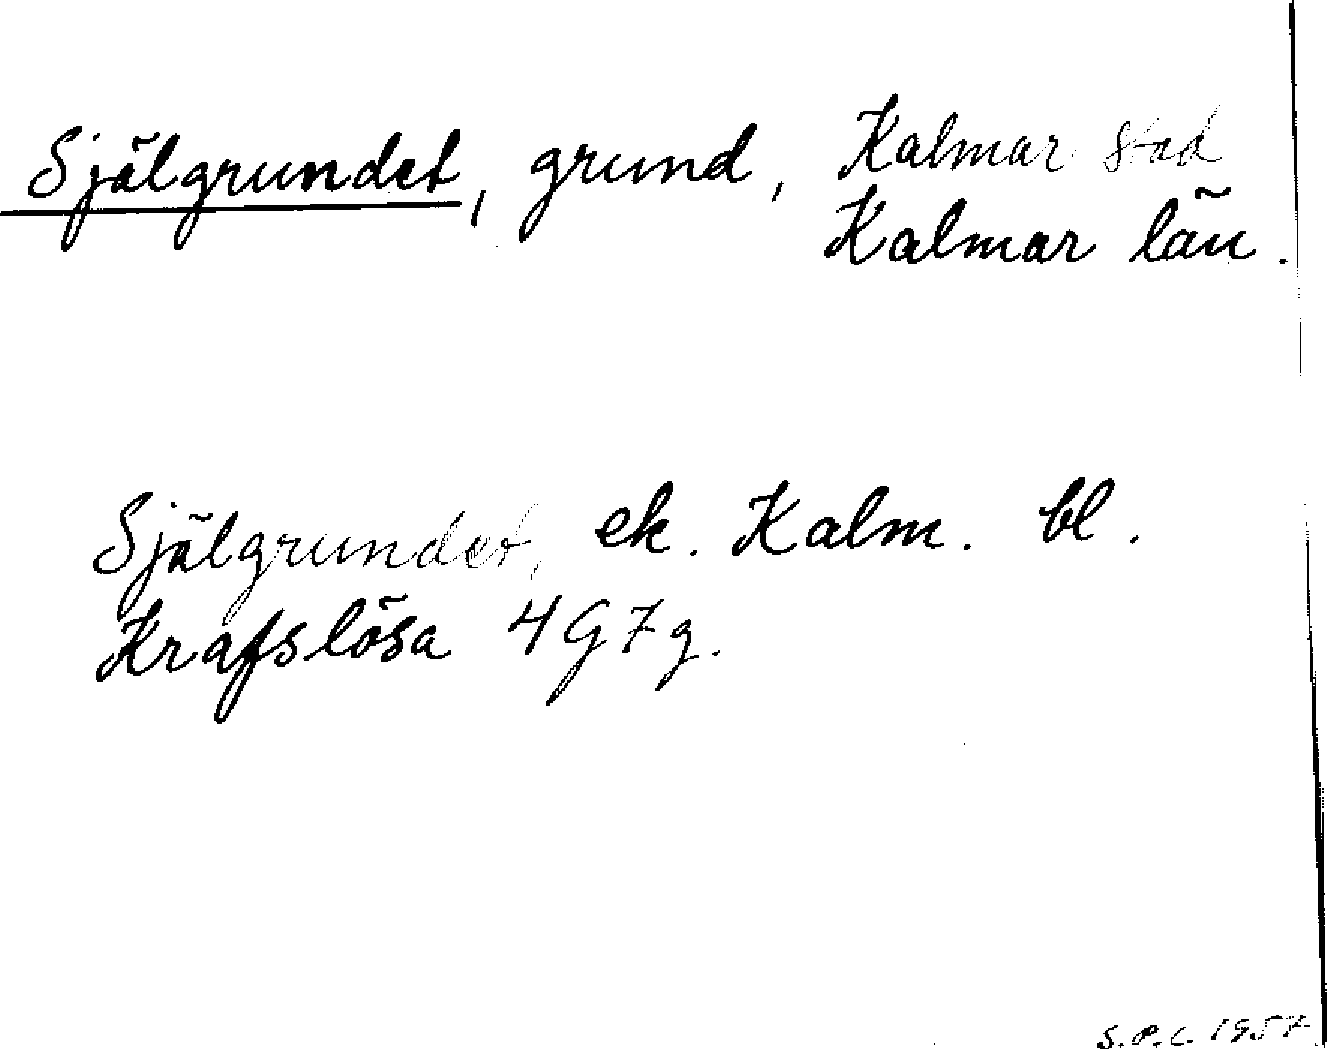 Själgrundet, grund, Kalmar stad
Kalmar län.
Själgrundet, ek. Kalm. bl.
Krafslösa 4G7g.
S.P.C. 1957